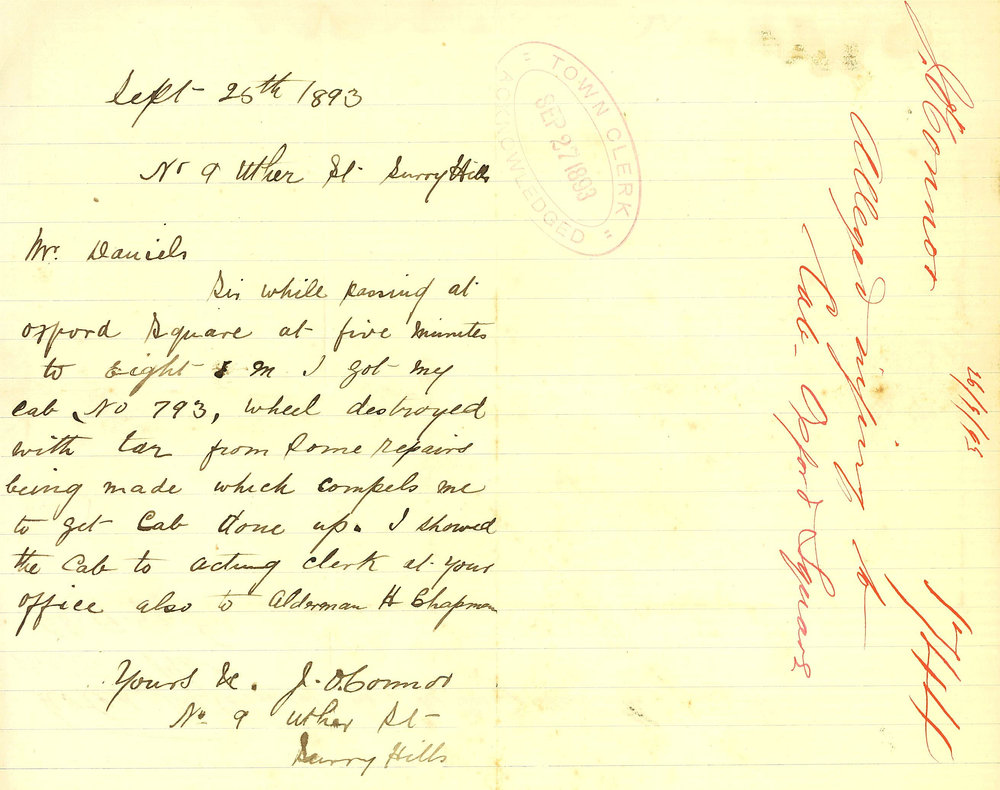 Sept 25th 1893
No 9 Uther St Surry Hills
Mr. Daniels
Sir while passing at
oxford Square at five minutes
to Eight m I got my
cab No 793, wheel destroyed
with tar from some repairs
being made which compels me
to get Cab done up. I showed
the Cab to acting clerk at your
office also to Alderman H Chapman
Yours &c. J. O.Connor
No 9 Uther St
Surry Hills
" TOWN CLERK "
SEP 27 1893
ACKNOWLEDGED
J. O'Connor
26/9/93
Alleged injury to
Cab. Oxford Square